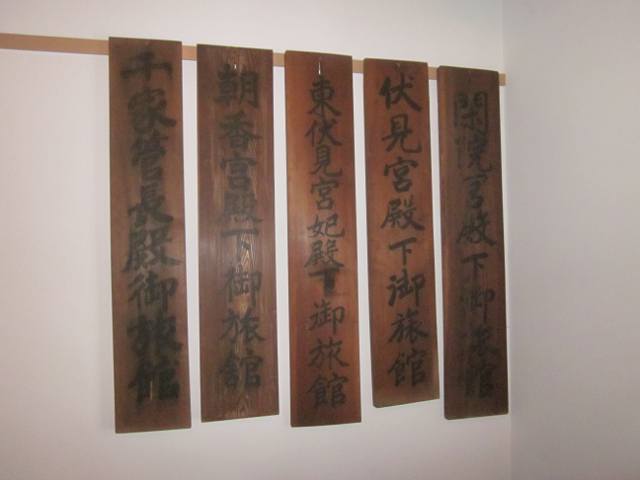 閑院宮殿下御旅館
伏見宮殿下御旅館
東伏見宮妃殿下御旅館
朝香宮殿下御旅館
千家管長殿御旅館